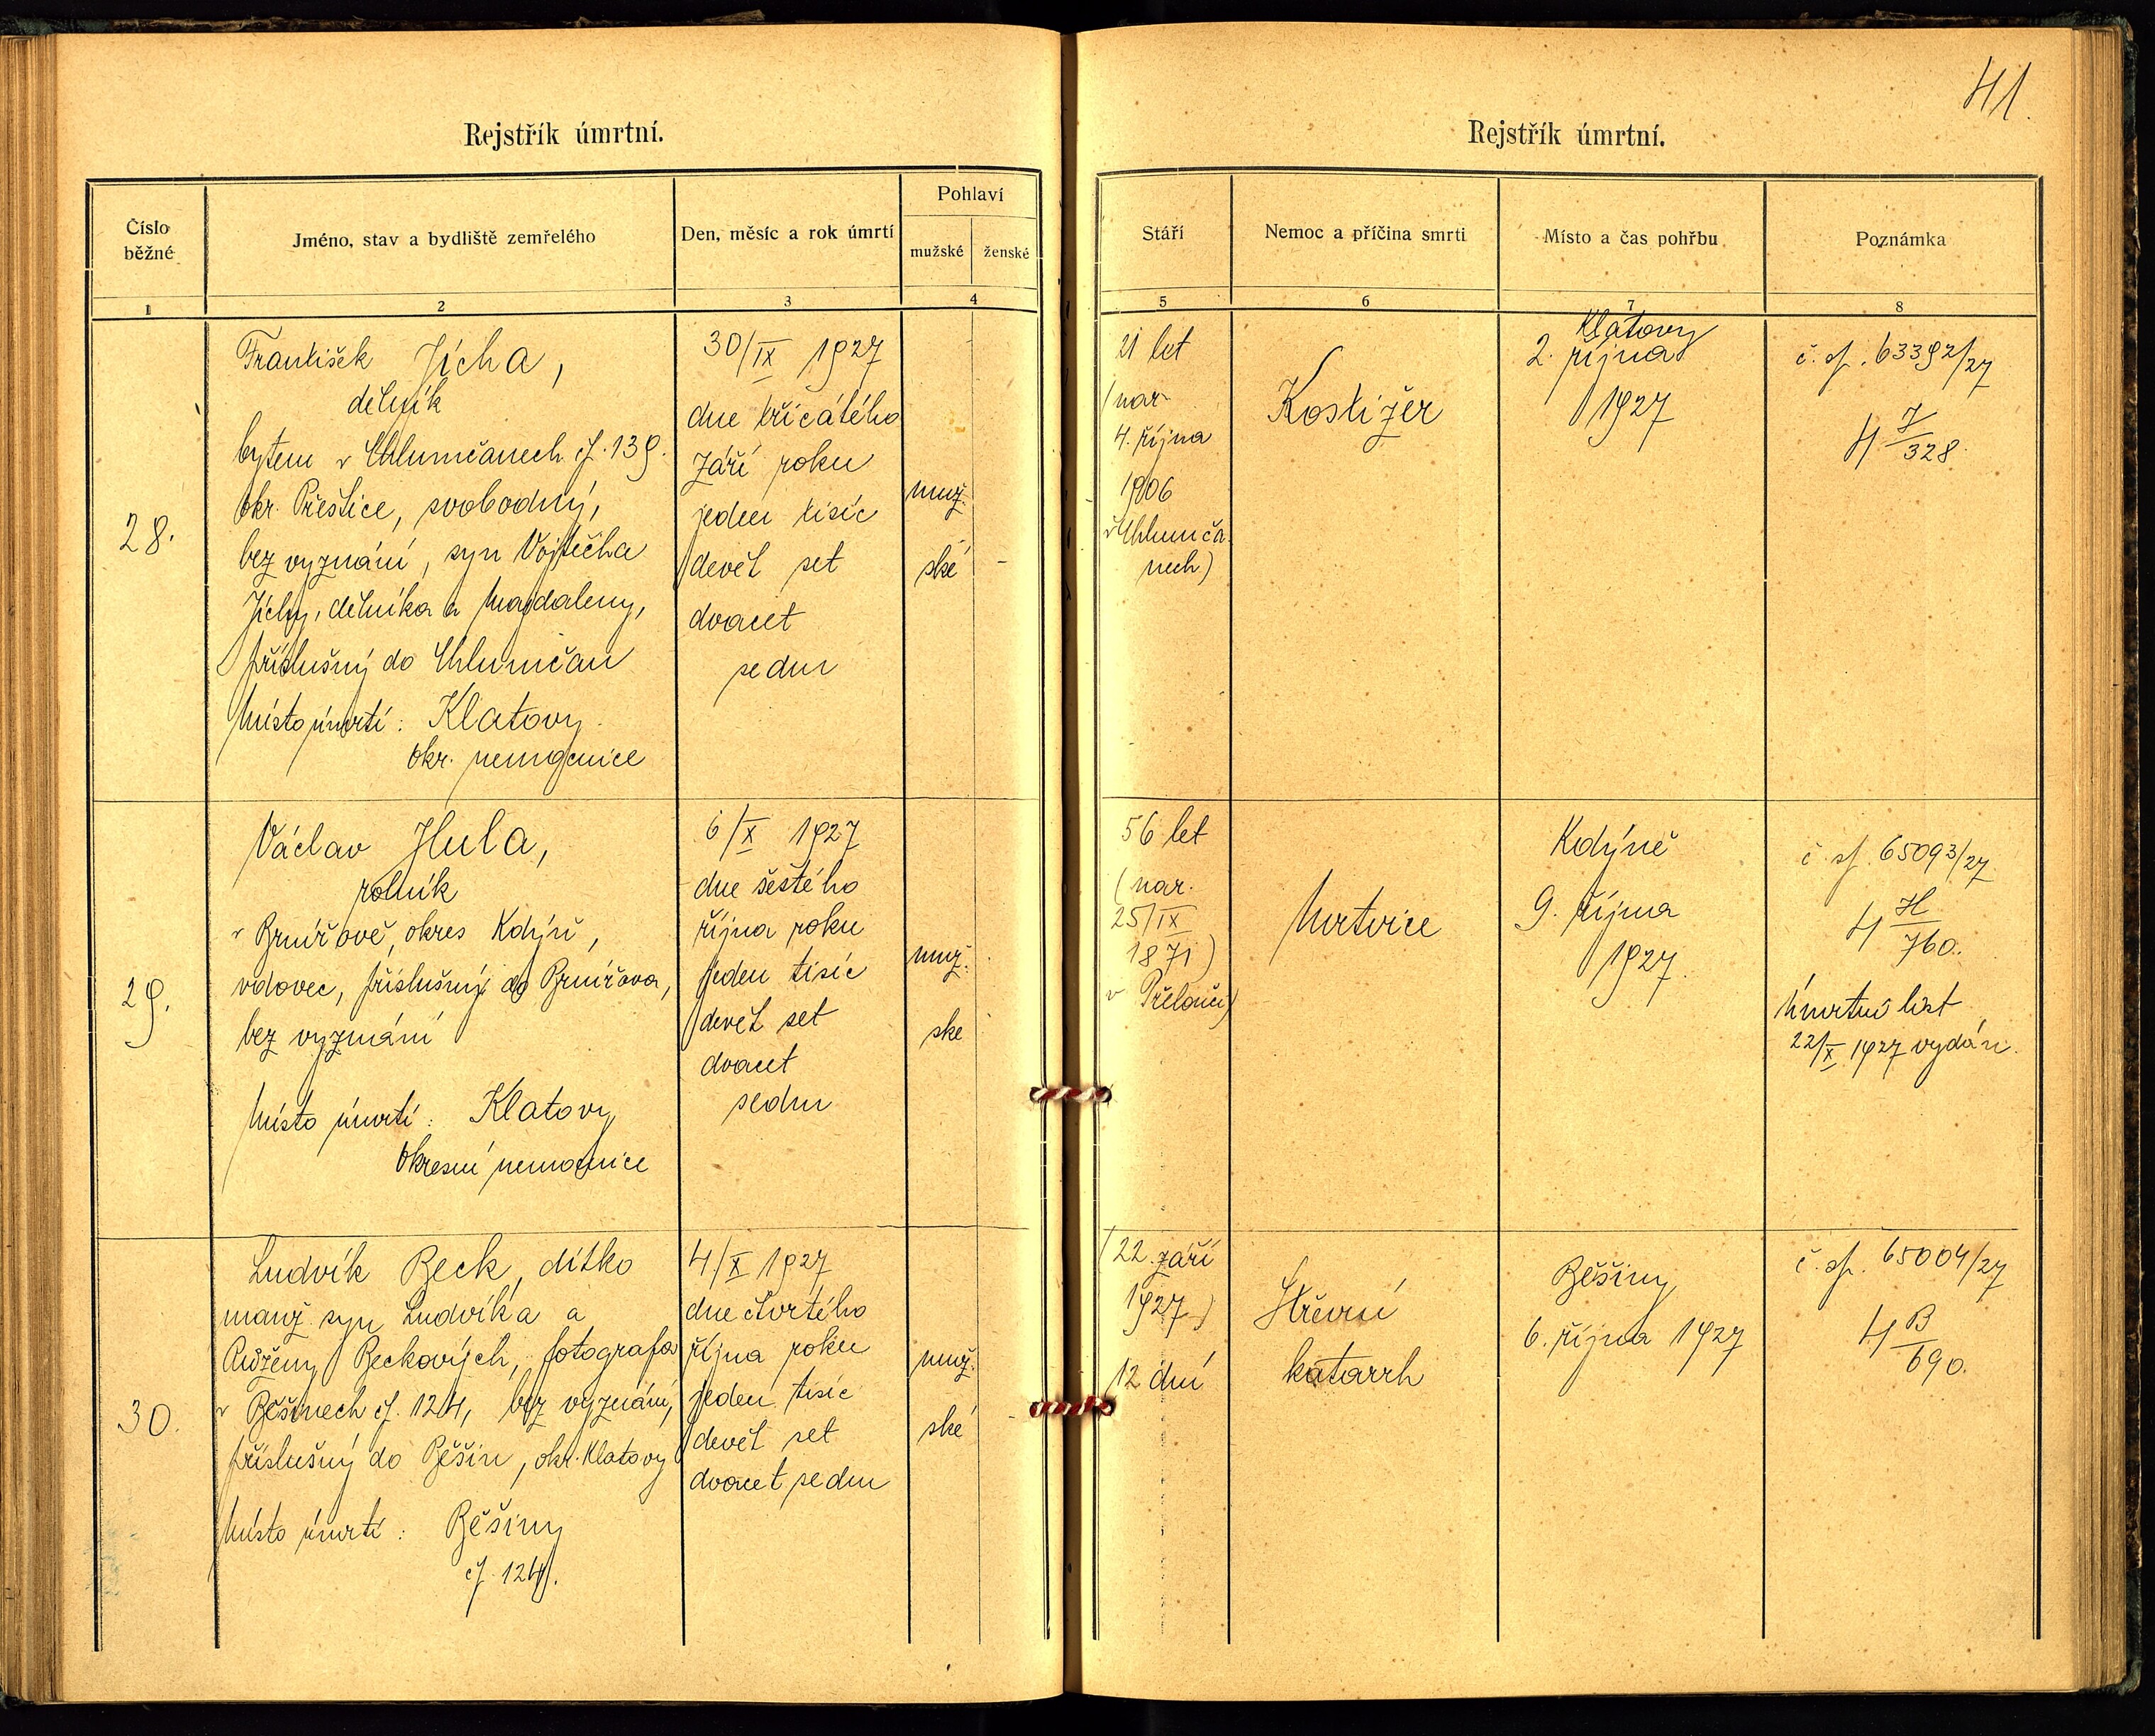 41.
Rejstřík úmrtní.
Číslo běžné
Jméno, stav a bydliště zemřelého
Den, měsíc a rok úmrtí
Pohlaví
mužské
ženské
1
2
3
4
28.
František Jícha,
dělník
bytem v Chlumčanech čp. 139.
okr. Přeštice, svobodný,
bez vyznání, syn Vojtěcha
Jíchy, dělníka a Magdaleny,
příslušný do Chlumčan
Místo úmrtí: Klatovy
okr. nemocnice
30/IX 1927
dne třicátého
září roku
jeden tisíc
devět set
dvacet
sedm
muž-
ské
-
29.
Václav Hula,
rolník
v Brnířově, okres Kdýň,
vdovec, příslušný do Brnířova,
bez vyznání
Místo úmrtí: Klatovy
Okresní nemocnice
6/X 1927
dne šestého
října roku
jeden tisíc
devět set
dvacet
sedm
muž-
ske
30.
Ludvík Beck, dítko
manž. syn Ludvíka a
Růženy Beckových, fotografa
v Běšinech čp. 124, bez vyznání,
příslušný do Běšin, okr. Klatovy
Místo úmrtí: Běšiny
čp. 124.
4/X 1927
dne čtvrtého
října roku
jeden tisíc
devět set
dvacet sedm
muž-
ské
-
Rejstřík úmrtní.
Stáří
Nemoc a příčina smrti
Místo a čas pohřbu
Poznámka
5
6
7
8
21 let
(nar.
4. října
1906
v Chlumča-
nech)
Kostižer
Klatovy
2. října
1927
č. sp. 63392/27
H J/328.
56 let
(nar.
25/IX
1871)
v Přelouči)
Mrtvice
Kdýně
9. října
1927.
č. sp. 65093/27
H H/760.
Úmrtní list
22/X 1927 vydán.
(22. září
1927)
12 dní
Střevní
katarrh
Běšiny
6. října 1927
č. sp. 65004/27
H B/690.